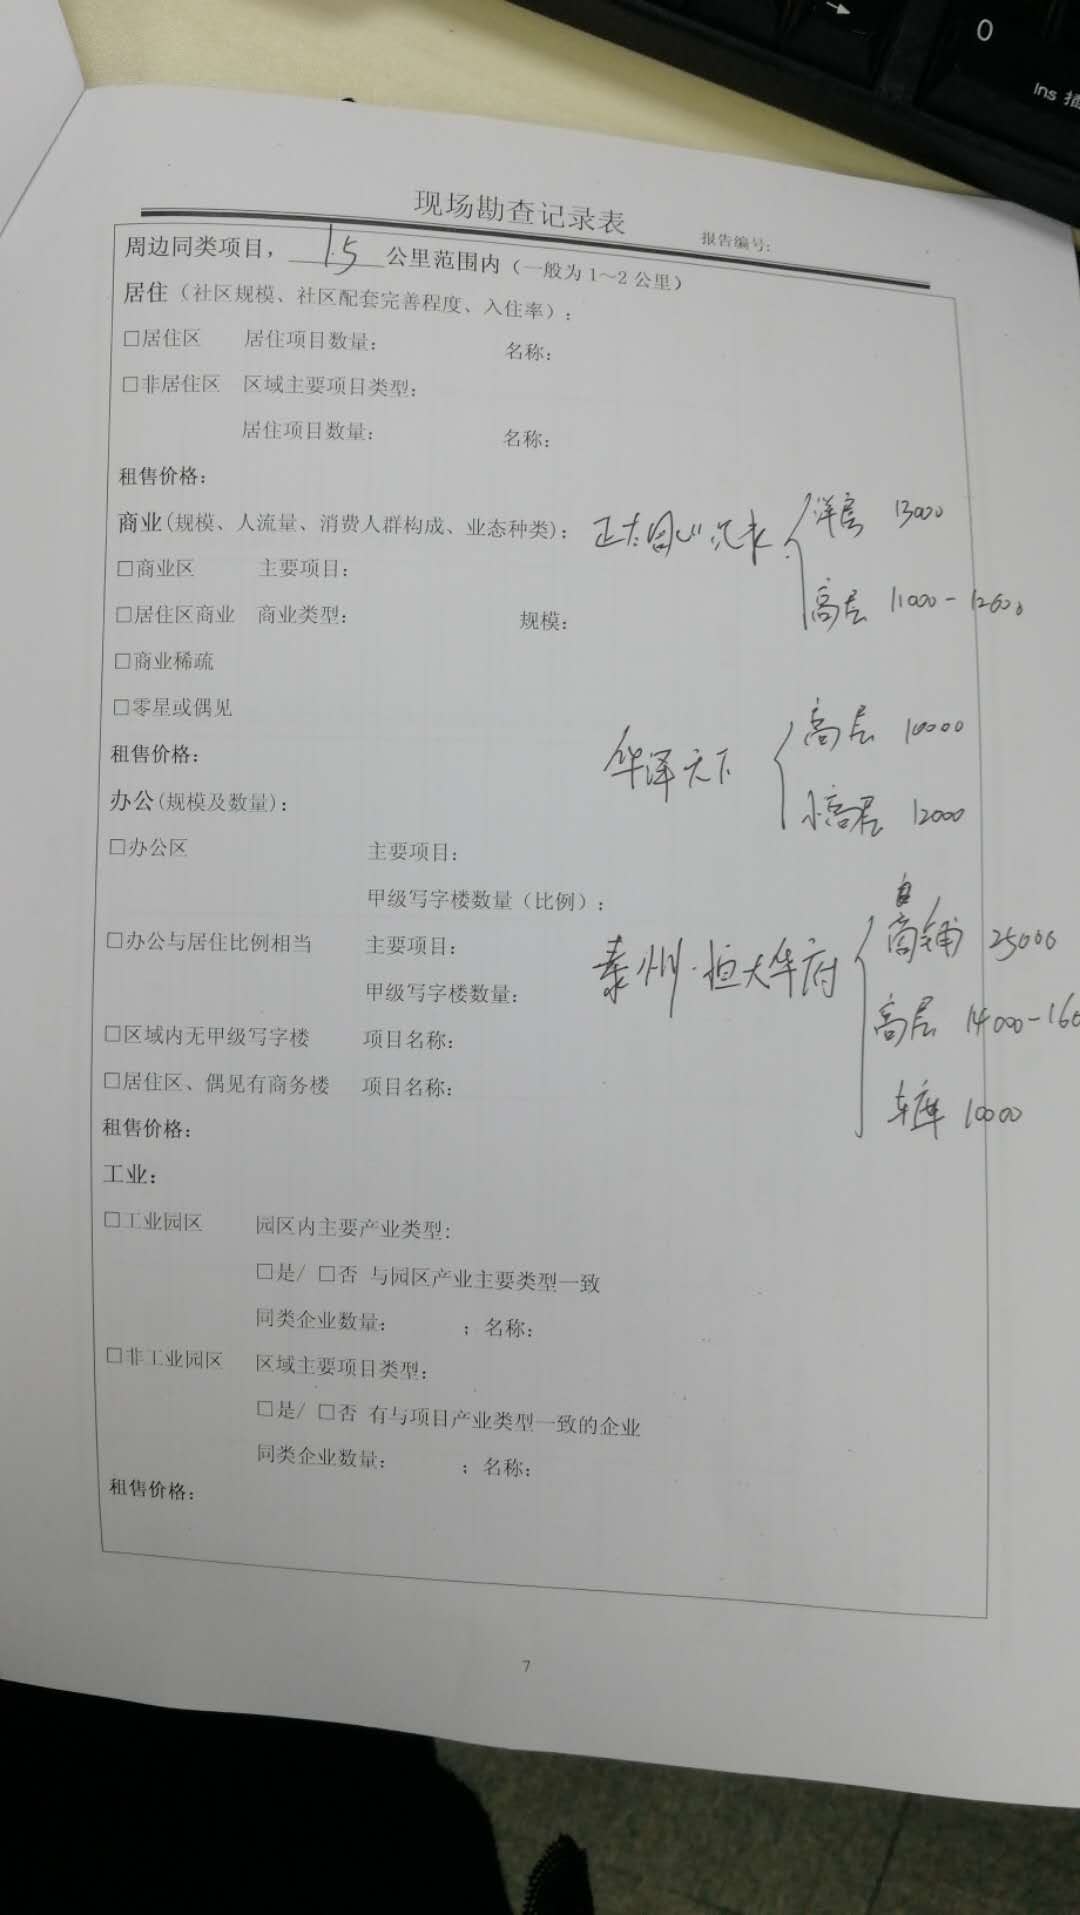 0
Ins 插
现场勘查记录表
报告编号:
周边同类项目，1.5公里范围内（一般为1～2公里）
居住（社区规模、社区配套完善程度、入住率）：
□居住区 居住项目数量: 名称:
□非居住区 区域主要项目类型:
居住项目数量: 名称:
租售价格:
商业(规模、人流量、消费人群构成、业态种类):
洋房 13000
□商业区 主要项目:
高层 11000-12600
□居住区商业 商业类型: 规模:
□商业稀疏
□零星或偶见
高层 10000
租售价格:
华泽天下
办公(规模及数量):
小高层 12000
□办公区 主要项目:
甲级写字楼数量（比例）:
商铺 25000
□办公与居住比例相当 主要项目:
泰州·恒大华府
甲级写字楼数量:
高层 14000-160
□区域内无甲级写字楼 项目名称:
□居住区、偶见有商务楼 项目名称:
车库 10000
租售价格:
工业:
□工业园区 园区内主要产业类型:
□是/ □否 与园区产业主要类型一致
同类企业数量: ；名称:
□非工业园区 区域主要项目类型:
□是/ □否 有与项目产业类型一致的企业
同类企业数量: ；名称:
租售价格:
7